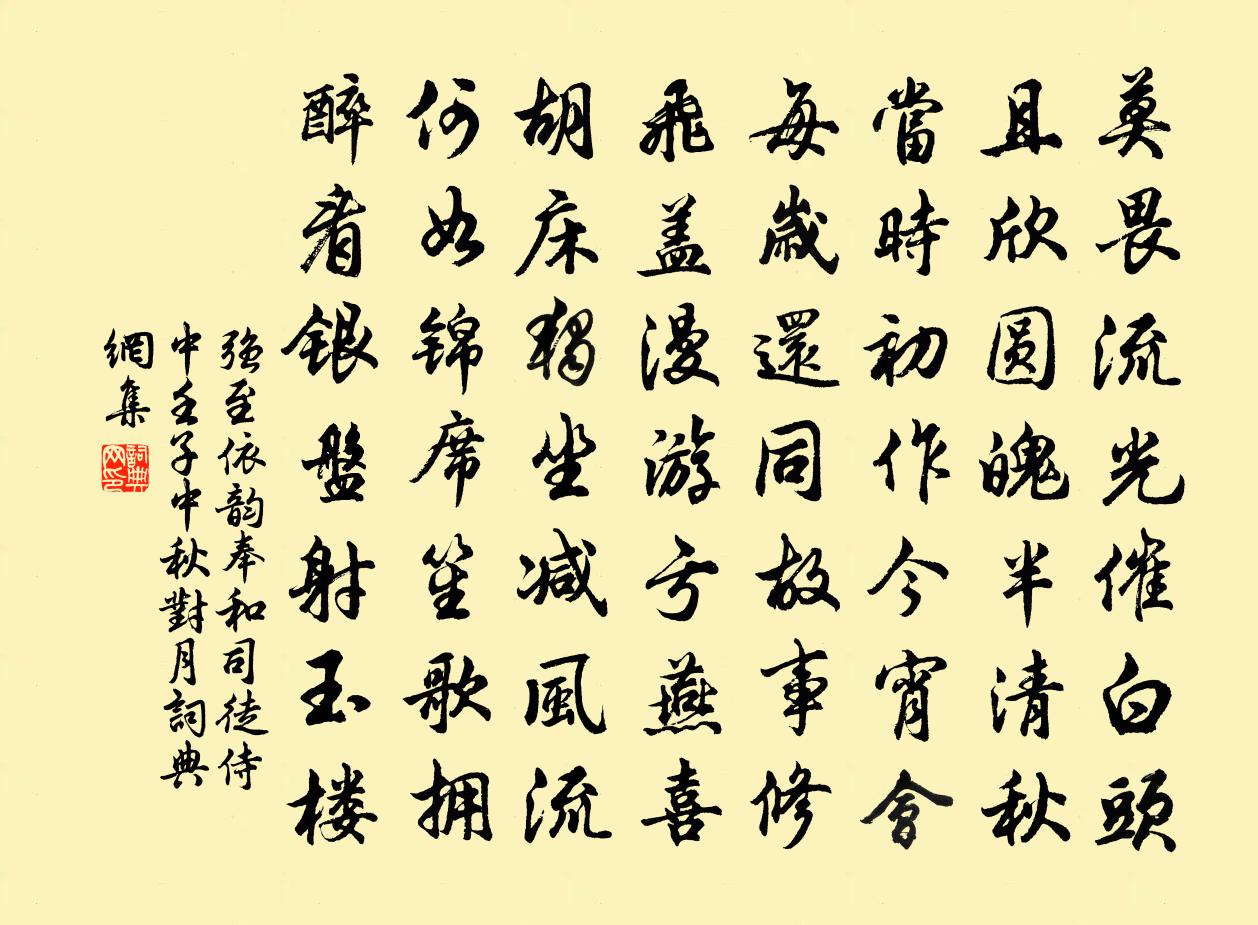 莫畏流光催白頭
且欣圓魄半清秋
當時初作今宵會
每歲還同故事修
飛盖漫游亏燕喜
胡床獨坐减風流
何如錦席笙歌拥
醉看銀盤射玉楼
強至依韵奉和司徒侍
中壬子中秋對月詞典
網集
詞典网印